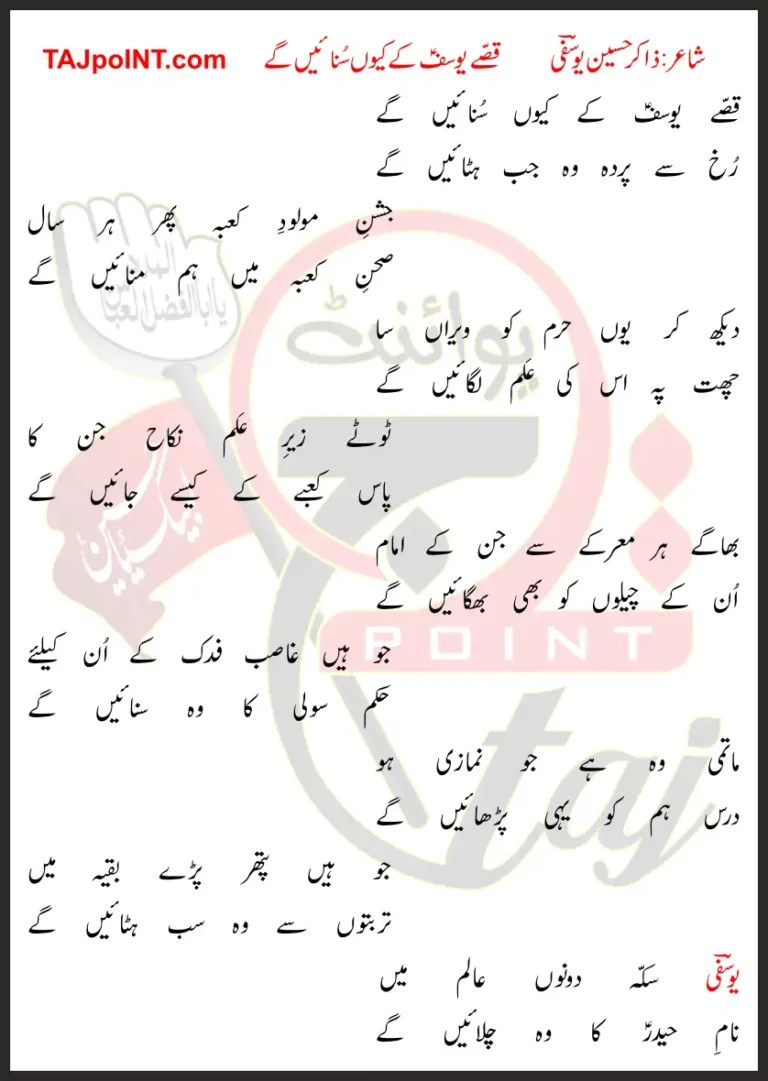 شاعر: ذاکر حسین یوسفیؔ قصّے یوسفؑ کے کیوں سُنائیں گے TAJpoINT.com
قصّے یوسفؑ کے کیوں سُنائیں گے
رُخ سے پردہ وہ جب ہٹائیں گے
جشنِ مولودِ کعبہ پھر ہر سال
صحنِ کعبہ میں ہم منائیں گے
دیکھ کر یوں حرم کو ویراں سا
چھت پہ اس کی عَلَم لگائیں گے
ٹوٹے زیرِ عَلَم نکاح جن کا
پاس کعبے کے کیسے جائیں گے
بھاگے ہر معرکے سے جن کے امام
اُن کے چیلوں کو بھی بھگائیں گے
جو ہیں غاصب فدک کے اُن کیلئے
حکم سولی کا وہ سنائیں گے
ماتمی وہ ہے جو نمازی ہو
درس ہم کو یہی پڑھائیں گے
جو ہیں پتھر پڑے بقیہ میں
تربتوں سے وہ سب ہٹائیں گے
یوسفیؔ سکّہ دونوں عالم میں
نامِ حیدرؑ کا وہ چلائیں گے
یا اباالفضل العباس
پوائنٹ
تاج
لبیک یا حسین
POINT
taj